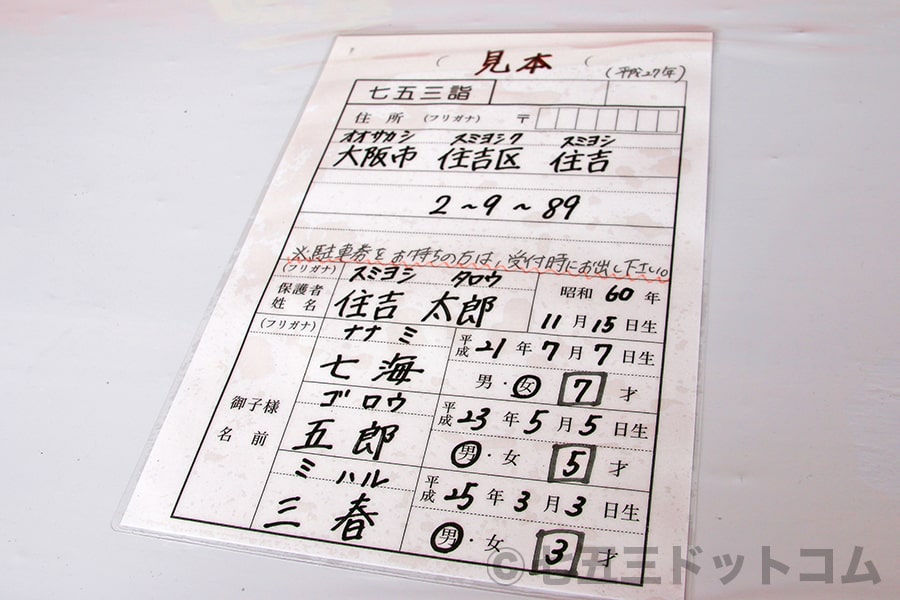 (見本(
(平成27年)
七五三詣
住所 (フリガナ) 〒
オオサカシ スミヨシク スミヨシ
大阪市 住吉区 住吉
2~9~89
※駐車券をお持ちの方は、受付時にお出し下さい。
(フリガナ) スミヨシ タロウ
保護者姓名 住吉 太郎
昭和 60年
11月15日生
(フリガナ) ナナミ
御子様名前
七海
平成21年7月7日生
男・女 7才
ゴロウ
五郎
平成23年5月5日生
男・女 5才
ミハル
三春
平成25年3月3日生
男・女 3才
©七五三ドットコム